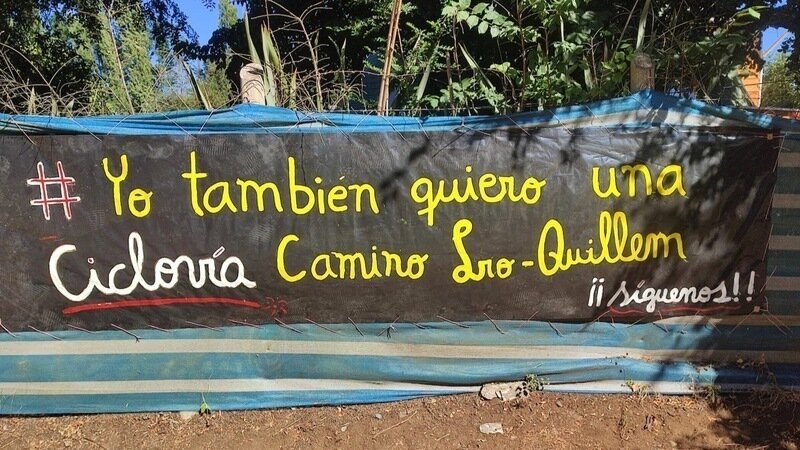 # Yo también quiero una
Ciclovía Camino Lro-Quillem
¡¡síguenos!!